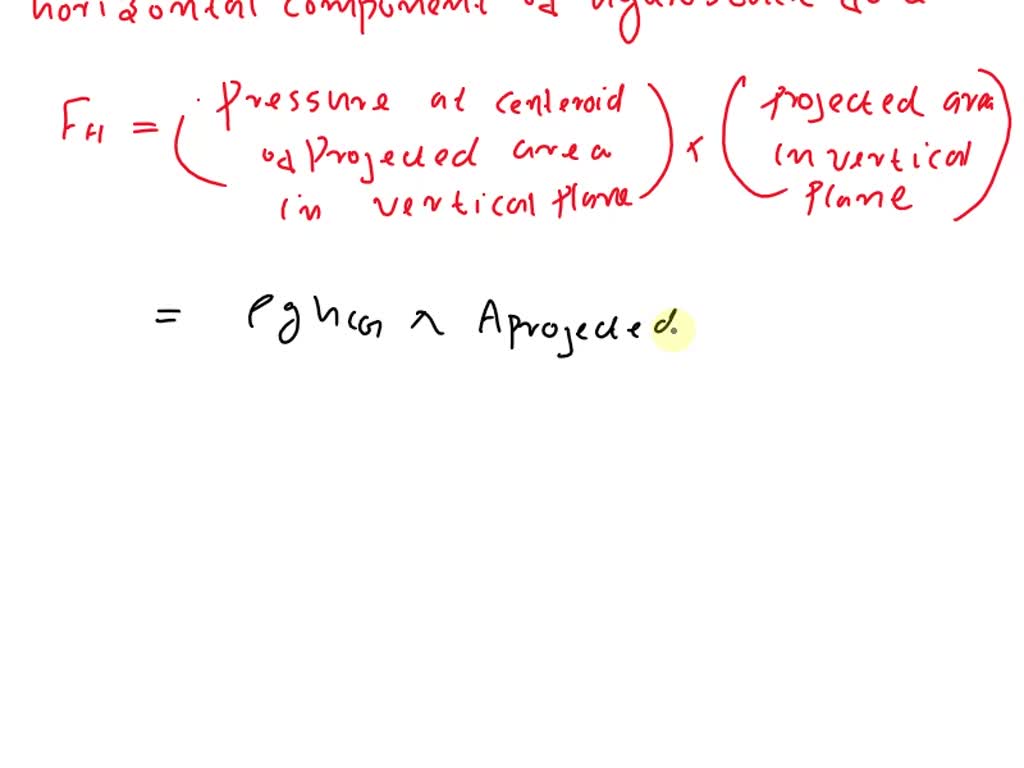 horizontal component of hydrostatic
F_H = (Pressure at centeroid of Projected area in vertical plane) × (projected area in vertical plane)
= ρ g h_CG × A projected.